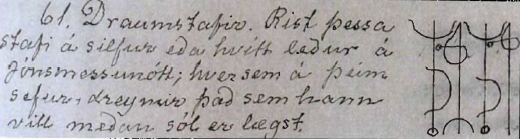 61. Draumstafir. Rist þessa
stafi á silfur eða hvítt leður á
Jónsmessunótt; hver sem á þeim
sefur, dreymir það sem hann
vill meðan sól er lægst.